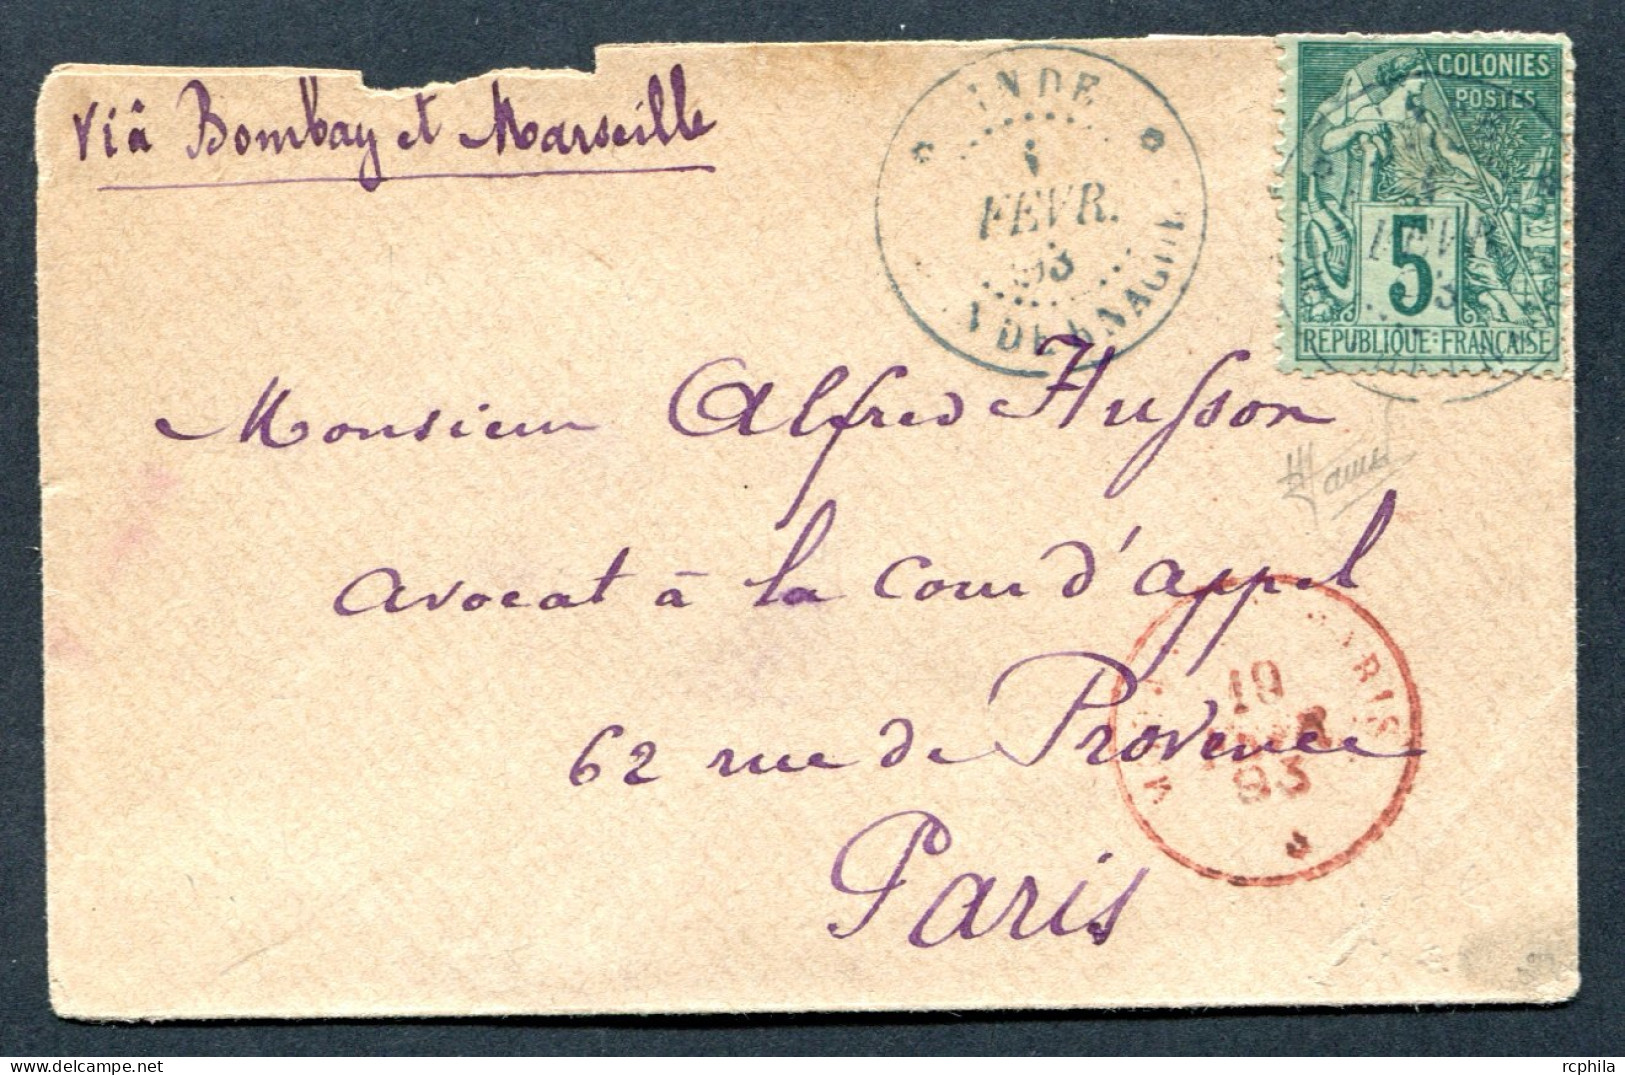 Viâ Bombay et Marseille
INDE
FEVR.
93
COLONIES
POSTES
5
REPUBLIQUE FRANÇAISE
Monsieur Alfred Husson
avocat à la cour d'appel
62 rue de Provence
Paris
PARIS
19
93
rcphila